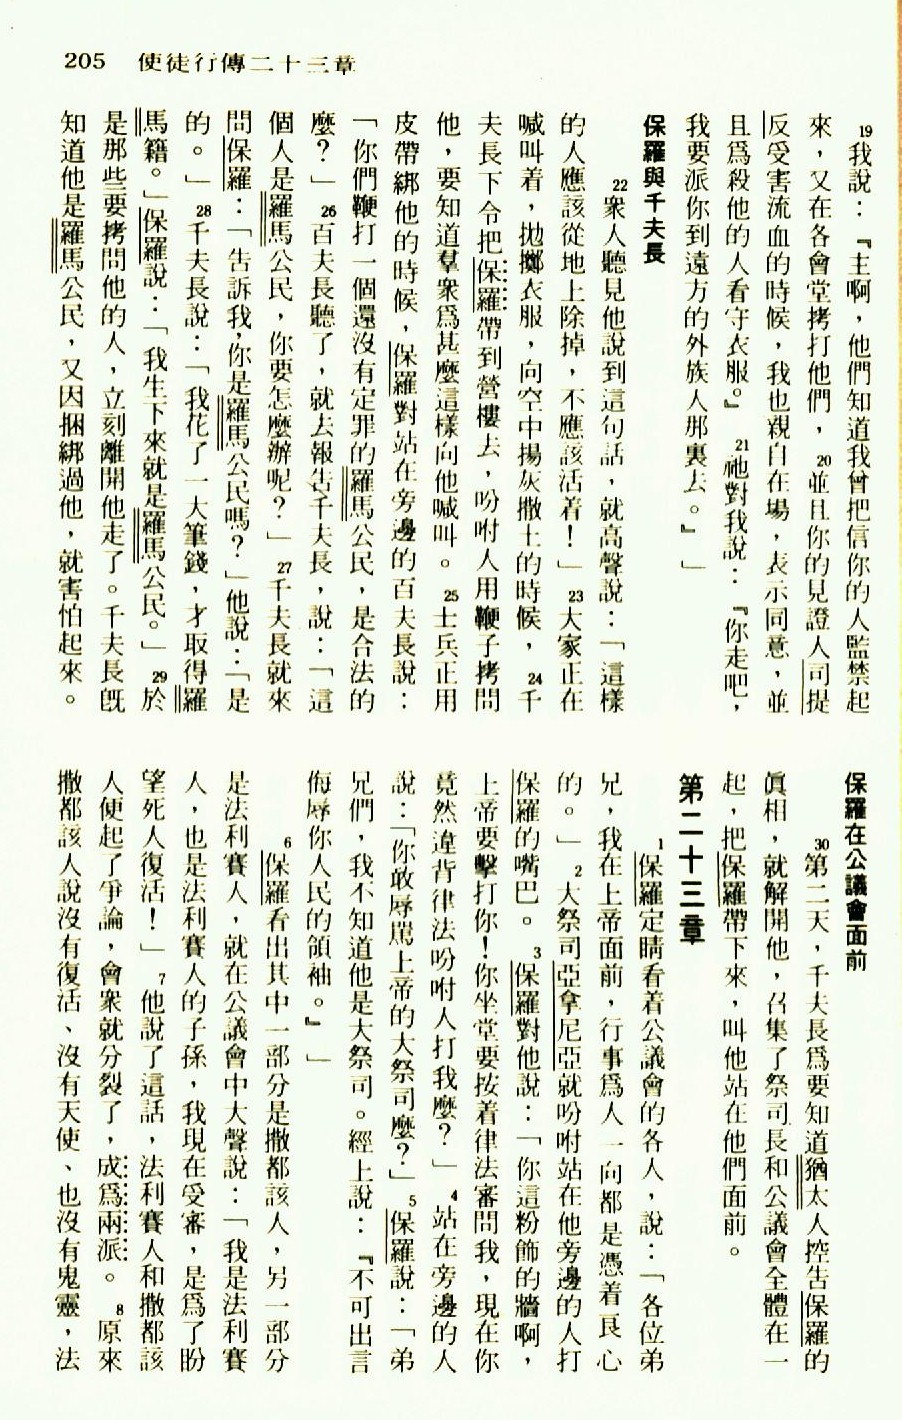 205 使徒行傳二十三章
19我說：『主啊，他們知道我曾把信你的人監禁起
來，又在各會堂拷打他們，20並且你的見證人司提
反受害流血的時候，我也親自在場，表示同意，並
且爲殺他的人看守衣服。』21祂對我說：『你走吧，
我要派你到遠方的外族人那裏去。』」
保羅與千夫長
22衆人聽見他說到這句話，就高聲說：「這樣
的人應該從地上除掉，不應該活着！」23大家正在
喊叫着，拋擲衣服，向空中揚灰撒土的時候，24千
夫長下令把保羅帶到營樓去，吩咐人用鞭子拷問
他，要知道羣衆爲甚麼這樣向他喊叫。25士兵正用
皮帶綁他的時候，保羅對站在旁邊的百夫長說：
「你們鞭打一個還沒有定罪的羅馬公民，是合法的
麼？」26百夫長聽了，就去報告千夫長，說：「這
個人是羅馬公民，你要怎麼辦呢？」27千夫長就來
問保羅：「告訴我，你是羅馬公民嗎？」他說：「是
的。」28千夫長說：「我花了一大筆錢，才取得羅
馬籍。」保羅說：「我生下來就是羅馬公民。」29於
是那些要拷問他的人，立刻離開他走了。千夫長旣
知道他是羅馬公民，又因捆綁過他，就害怕起來。
保羅在公議會面前
30第二天，千夫長爲要知道猶太人控告保羅的
眞相，就解開他，召集了祭司長和公議會全體在一
起，把保羅帶下來，叫他站在他們面前。
第二十三章
1保羅定睛看着公議會的各人，說：「各位弟
兄，我在上帝面前，行事爲人一向都是憑着良心
的。」2大祭司亞拿尼亞就吩咐站在他旁邊的人打
保羅的嘴巴。3保羅對他說：「你這粉飾的牆啊，
上帝要擊打你！你坐堂要按着律法審問我，現在你
竟然違背律法吩咐人打我麼？」4站在旁邊的人
說：「你敢辱罵上帝的大祭司麼？」5保羅說：「弟
兄們，我不知道他是大祭司。經上說：『不可出言
侮辱你人民的領袖。』」
6保羅看出其中一部分是撒都該人，另一部分
是法利賽人，就在公議會中大聲說：「我是法利賽
人，也是法利賽人的子孫，我現在受審，是爲了盼
望死人復活！」7他說了這話，法利賽人和撒都該
人便起了爭論，會衆就分裂了，成爲兩派。8原來
撒都該人說沒有復活、沒有天使、也沒有鬼靈，法